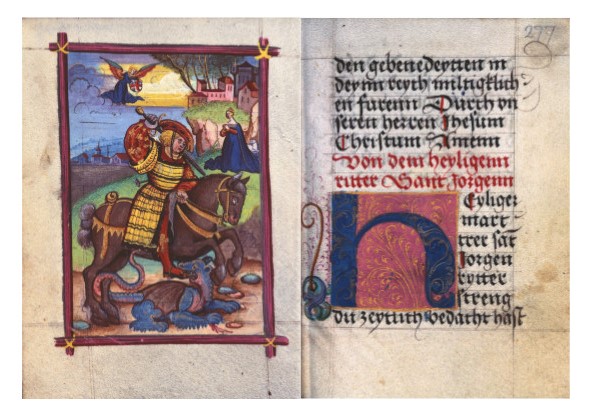 277
den gebenedeytten in
deynn reych miltigklich
en furenn Durch vn
seren herren Jhesum
Christum Amenn
Von dem heyligenn
ritter Sant Jorgenn
Heyliger
mart
rer sāt
Jorgen
rytter
streng
du zeytlich bedacht hast